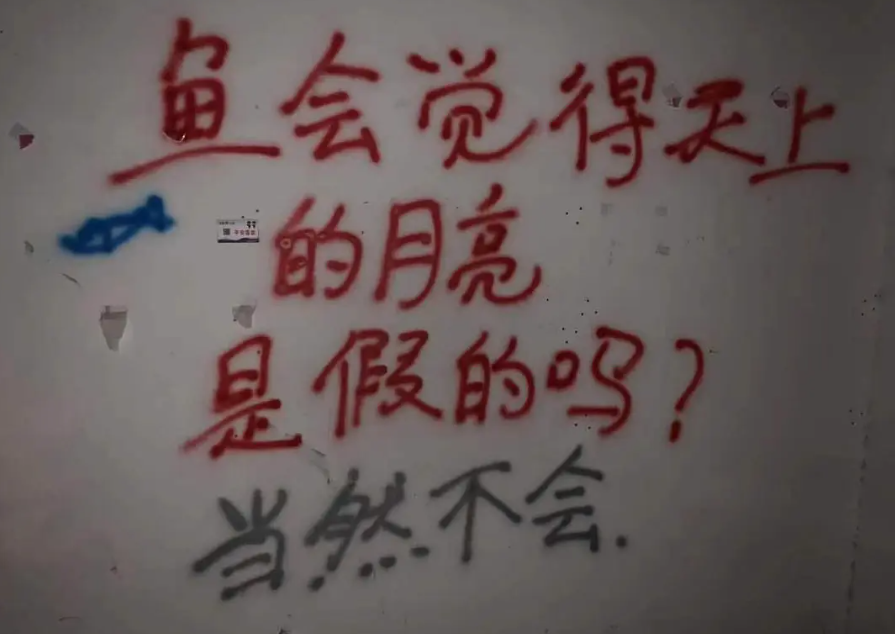 鱼会觉得天上
的月亮
是假的吗?
当然不会.